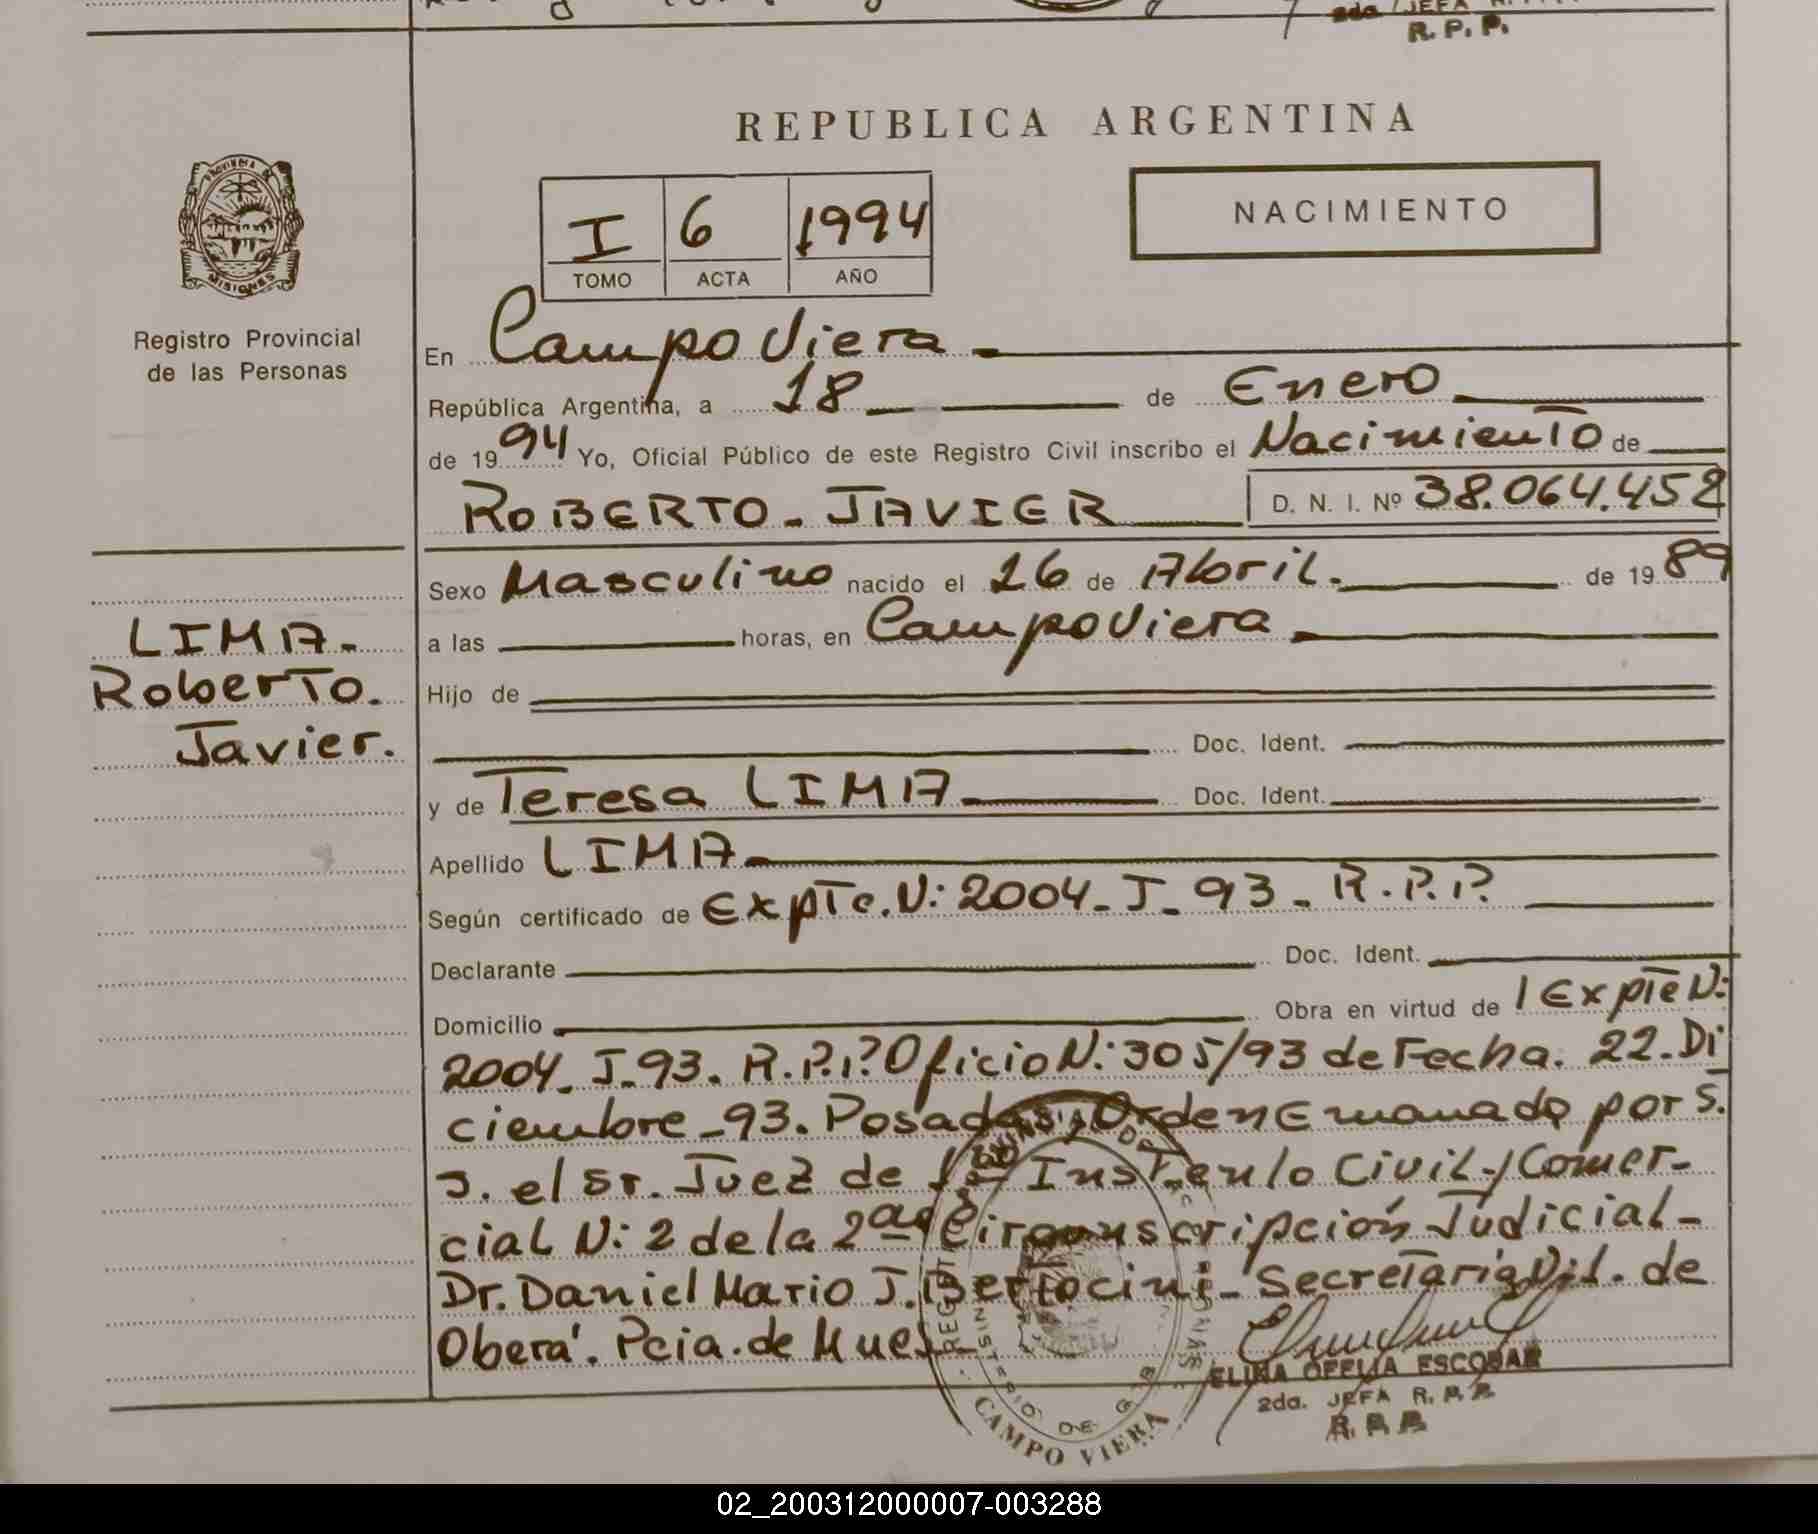 2da. JEFA R.P.P.
R. P. P.
REPUBLICA ARGENTINA
PROVINCIA DE
MISIONES
I 6 1994
TOMO ACTA AÑO
NACIMIENTO
Registro Provincial
de las Personas
En Campo Viera -
República Argentina, a 18 de Enero
de 1994 Yo, Oficial Público de este Registro Civil inscribo el Nacimiento de
ROBERTO - JAVIER D. N. I. Nº 38.064.452
Sexo Masculino nacido el 26 de Abril. de 1989
a las horas, en Campo Viera -
LIMA-
Roberto.
Javier.
Hijo de
Doc. Ident.
y de Teresa LIMA Doc. Ident.
Apellido LIMA
Según certificado de Expte. N: 2004- J- 93- R.P.P.
Declarante Doc. Ident.
Domicilio Obra en virtud de / Expte N:
2004- J-93. R.P.P. Oficio N: 305/93 de Fecha. 22-Di
ciembre-93. Posadas, Orden Emanado por S.
S. el Sr. Juez de 1ª Inst. en lo Civil y Comer-
cial N: 2 de la 2ª Circunscripción Judicial-
Dr. Daniel Mario J. - Secretaria de
Oberá. Pcia. de
CAMPO VIERA
ELINA OFELIA ESCOBAR
2da. JEFA R. P. P.
R. P. P.
02_200312000007-003288